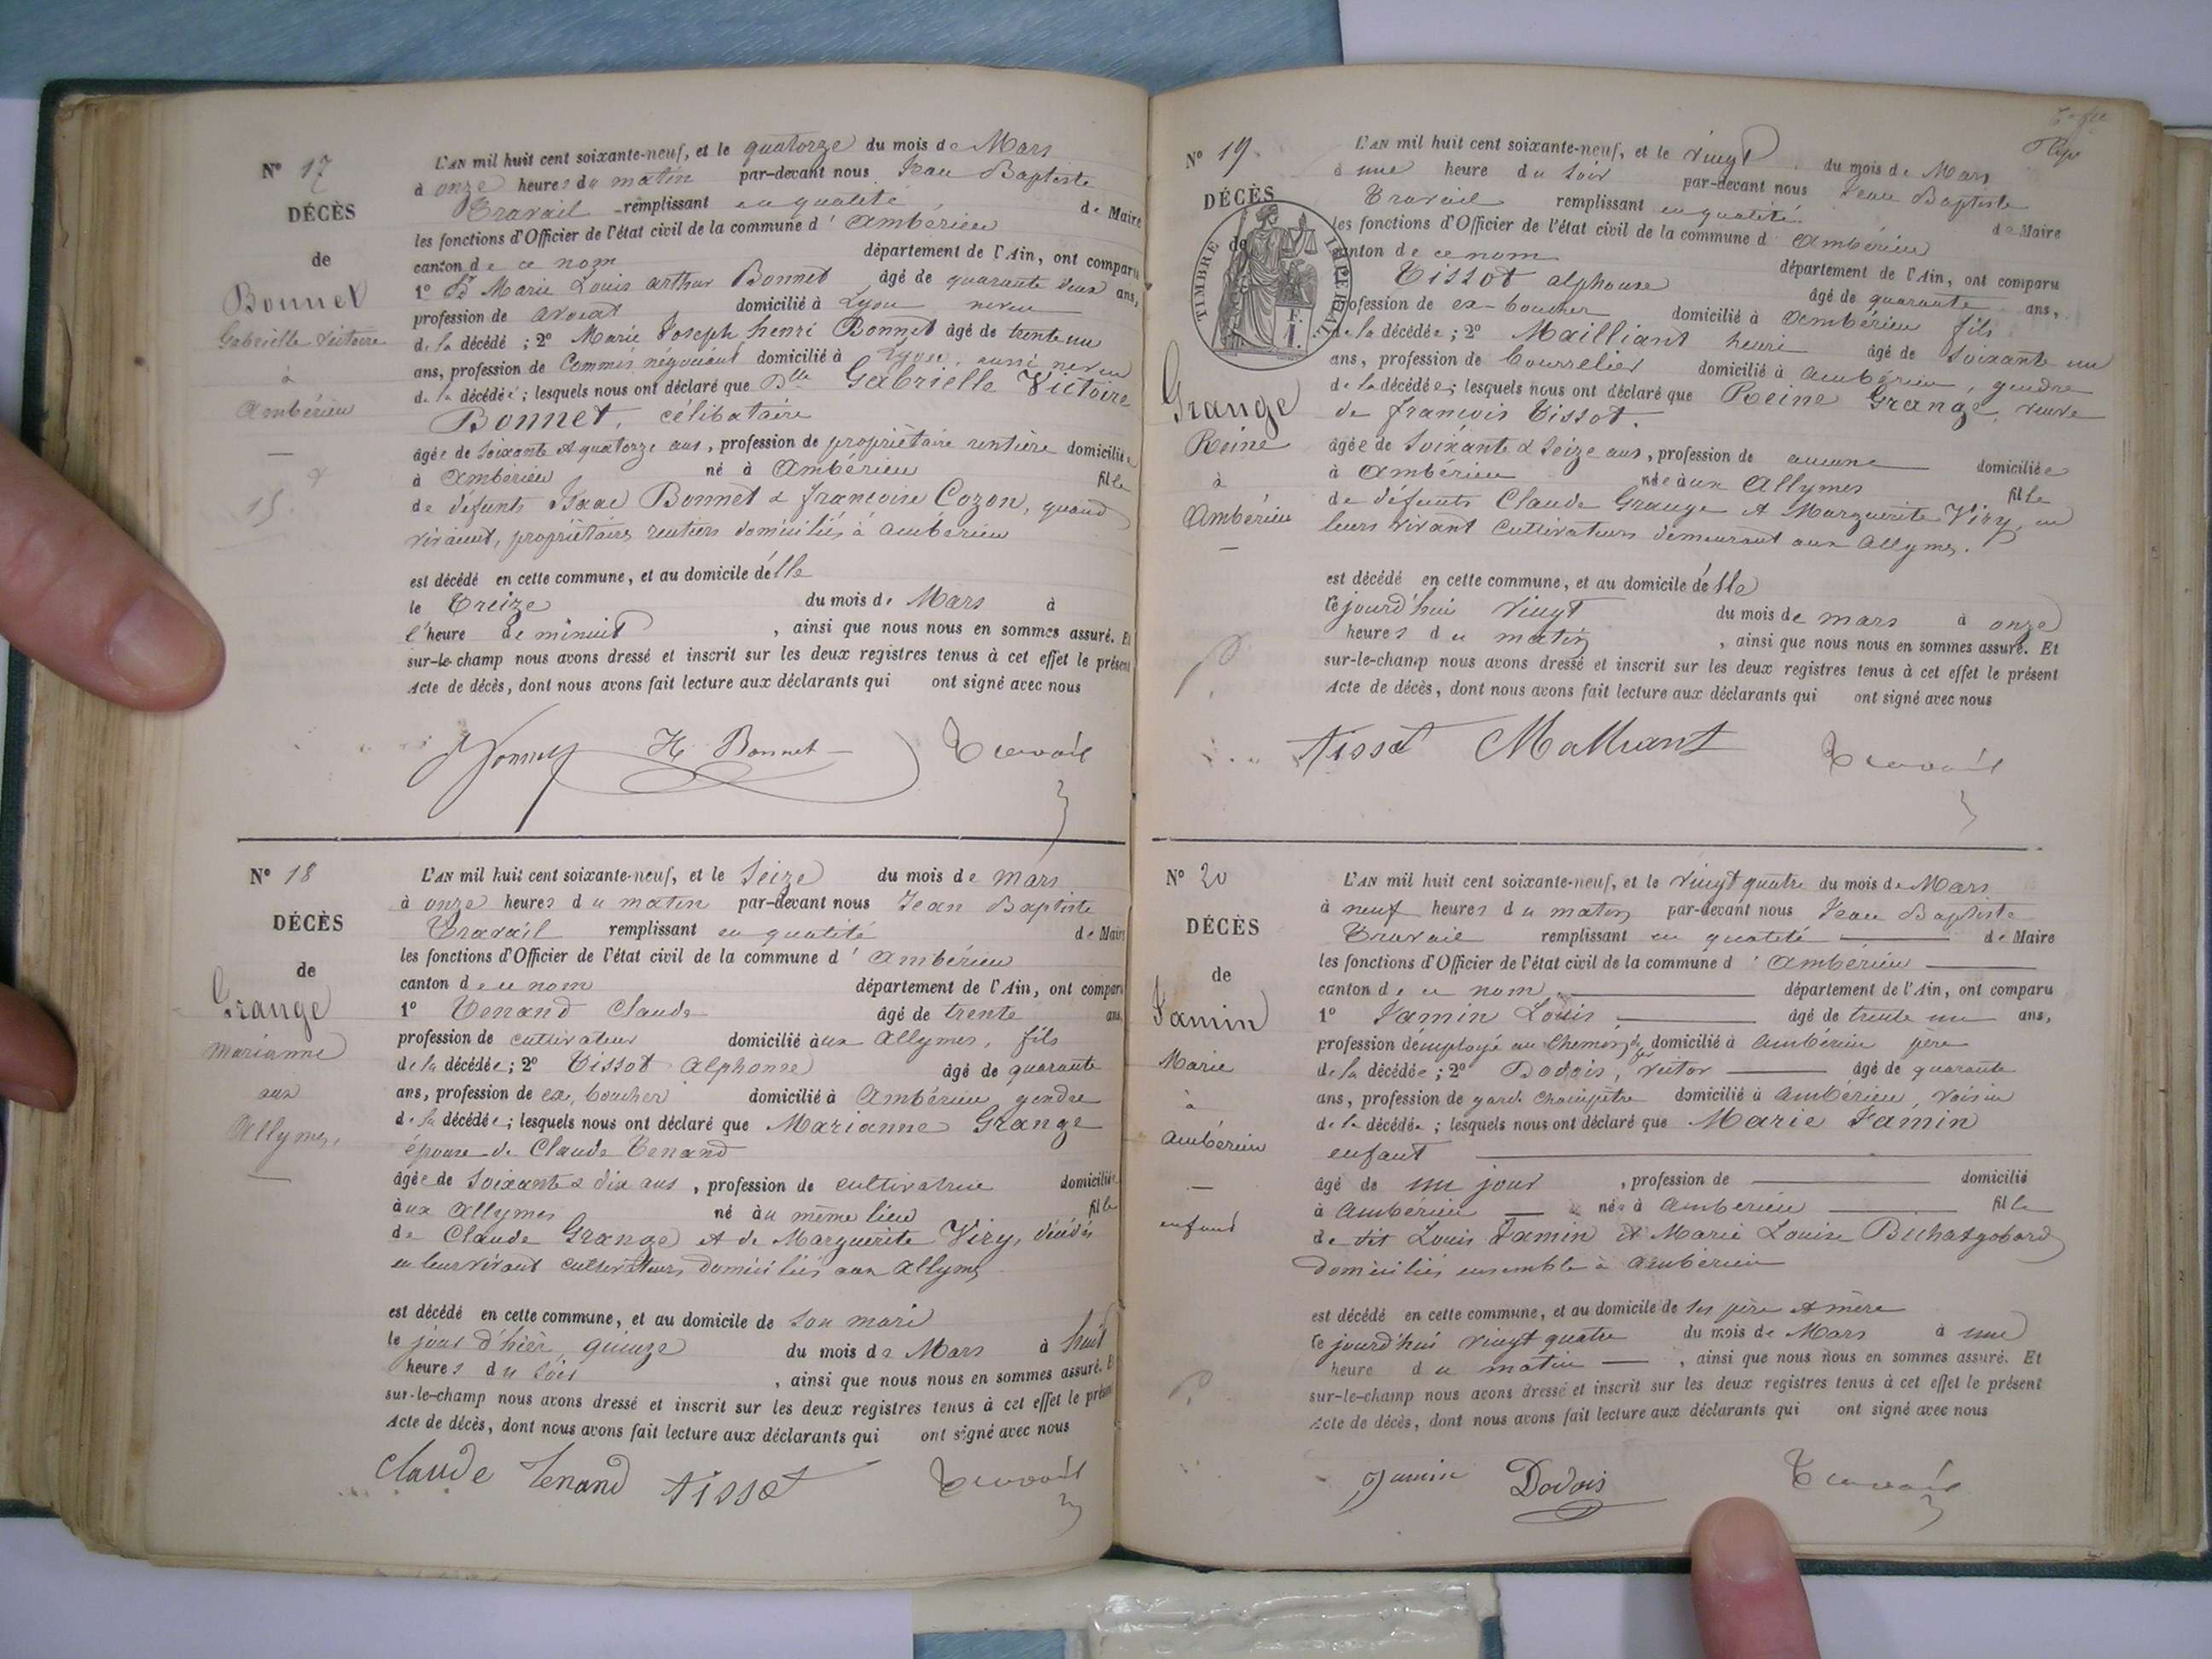 N° 17
DÉCÈS
de
Bonnet
Gabrielle Victoire
à
Ambérieu
15.
L'AN mil huit cent soixante-neuf, et le quatorze du mois de Mars
à onze heures du matin par-devant nous Jean Baptiste
Travail remplissant en qualité de Maire
les fonctions d'Officier de l'état civil de la commune d'Ambérieu
canton de ce nom département de l'Ain, ont comparu
1° Sr Marie Louis Arthur Bonnet âgé de quarante deux ans,
profession de avocat domicilié à Lyon neveu
de la décédé ; 2° Marie Joseph henri Bonnet âgé de trente un
ans, profession de Commis négociant domicilié à Lyon, aussi neveu
de la décédée ; lesquels nous ont déclaré que Dlle Gabrielle Victoire
Bonnet, célibataire
âgée de soixante et quatorze ans, profession de propriétaire rentière domiciliée
à Ambérieu né à Ambérieu fille
de défunts Isaac Bonnet & françoise Cozon, quand
vivaient, propriétaires rentiers domiciliés à Ambérieu
est décédé en cette commune, et au domicile d'elle
le Treize du mois de Mars à
l'heure de minuit , ainsi que nous nous en sommes assuré. Et
sur-le-champ nous avons dressé et inscrit sur les deux registres tenus à cet effet le présent
Acte de décès, dont nous avons fait lecture aux déclarants qui ont signé avec nous
Bonnet H. Bonnet Travail
N° 18
DÉCÈS
de
Grange
Marianne
aux
Allymes,
L'AN mil huit cent soixante-neuf, et le Seize du mois de mars
à onze heures du matin par-devant nous Jean Baptiste
Travail remplissant en qualité de Maire
les fonctions d'Officier de l'état civil de la commune d'Ambérieu
canton de ce nom département de l'Ain, ont comparu
1° Tenand Claude âgé de trente ans,
profession de cultivateur domicilié aux Allymes, fils
de la décédée ; 2° Tissot Alphonse âgé de quarante
ans, profession de ex, boucher domicilié à Ambérieu gendre
de la décédée ; lesquels nous ont déclaré que Marianne Grange
épouse de Claude Tenand
âgée de soixante & dix ans, profession de cultivatrice domiciliée
aux Allymes né au même lieu fille
de Claude Grange et de Marguerite Viry, décédés
en leur vivant cultivateurs domiciliés aux Allymes
est décédé en cette commune, et au domicile de son mari
le jour d'hier, quinze du mois de Mars à huit
heures du soir , ainsi que nous nous en sommes assuré. Et
sur-le-champ nous avons dressé et inscrit sur les deux registres tenus à cet effet le présent
Acte de décès, dont nous avons fait lecture aux déclarants qui ont signé avec nous
Claude Tenand Tissot Travail
N° 19.
DÉCÈS
de
TIMBRE IMPERIAL
1 F.
Grange
Reine
à
Ambérieu
L'AN mil huit cent soixante-neuf, et le vingt du mois de Mars
à une heure du soir par-devant nous Jean Baptiste
Travail remplissant en qualité de Maire
les fonctions d'Officier de l'état civil de la commune d'Ambérieu
canton de ce nom département de l'Ain, ont comparu
Tissot alphonse âgé de quarante ans,
profession de ex-boucher domicilié à Ambérieu fils
de la décédée ; 2° Mailliant henri âgé de soixante un
ans, profession de bourrelier domicilié à Ambérieu, gendre
de la décédée ; lesquels nous ont déclaré que Reine Grange, veuve
de françois Tissot.
âgée de soixante & seize ans, profession de aucune domiciliée
à Ambérieu née aux Allymes fille
de défunts Claude Grange et Marguerite Viry, en
leurs vivant cultivateurs demeurant aux Allymes.
est décédé en cette commune, et au domicile d'elle
cejourd'hui vingt du mois de mars à onze
heures du matin , ainsi que nous nous en sommes assuré. Et
sur-le-champ nous avons dressé et inscrit sur les deux registres tenus à cet effet le présent
Acte de décès, dont nous avons fait lecture aux déclarants qui ont signé avec nous
Tissot Malliant Travail
N° 20
DÉCÈS
de
Jamin
Marie
à
Ambérieu
enfant
L'AN mil huit cent soixante-neuf, et le vingt quatre du mois de Mars
à neuf heures du matin par-devant nous Jean Baptiste
Travail remplissant en qualité de Maire
les fonctions d'Officier de l'état civil de la commune d'Ambérieu
canton de ce nom département de l'Ain, ont comparu
1° Jamin Louis âgé de trente un ans,
profession d'employé au Chemin de fer domicilié à Ambérieu père
de la décédée ; 2° Dodois, Victor âgé de quarante
ans, profession de garde champêtre domicilié à Ambérieu, voisin
de la décédée ; lesquels nous ont déclaré que Marie Jamin
enfant
âgé de un jour , profession de domicilié
à Ambérieu née à Ambérieu fille
de dit Louis Jamin et Marie Louise
domiciliés ensemble à Ambérieu
est décédé en cette commune, et au domicile de ses père et mère
cejourd'hui vingt quatre du mois de Mars à une
heure du matin , ainsi que nous nous en sommes assuré. Et
sur-le-champ nous avons dressé et inscrit sur les deux registres tenus à cet effet le présent
Acte de décès, dont nous avons fait lecture aux déclarants qui ont signé avec nous
Jamin Dodois Travail